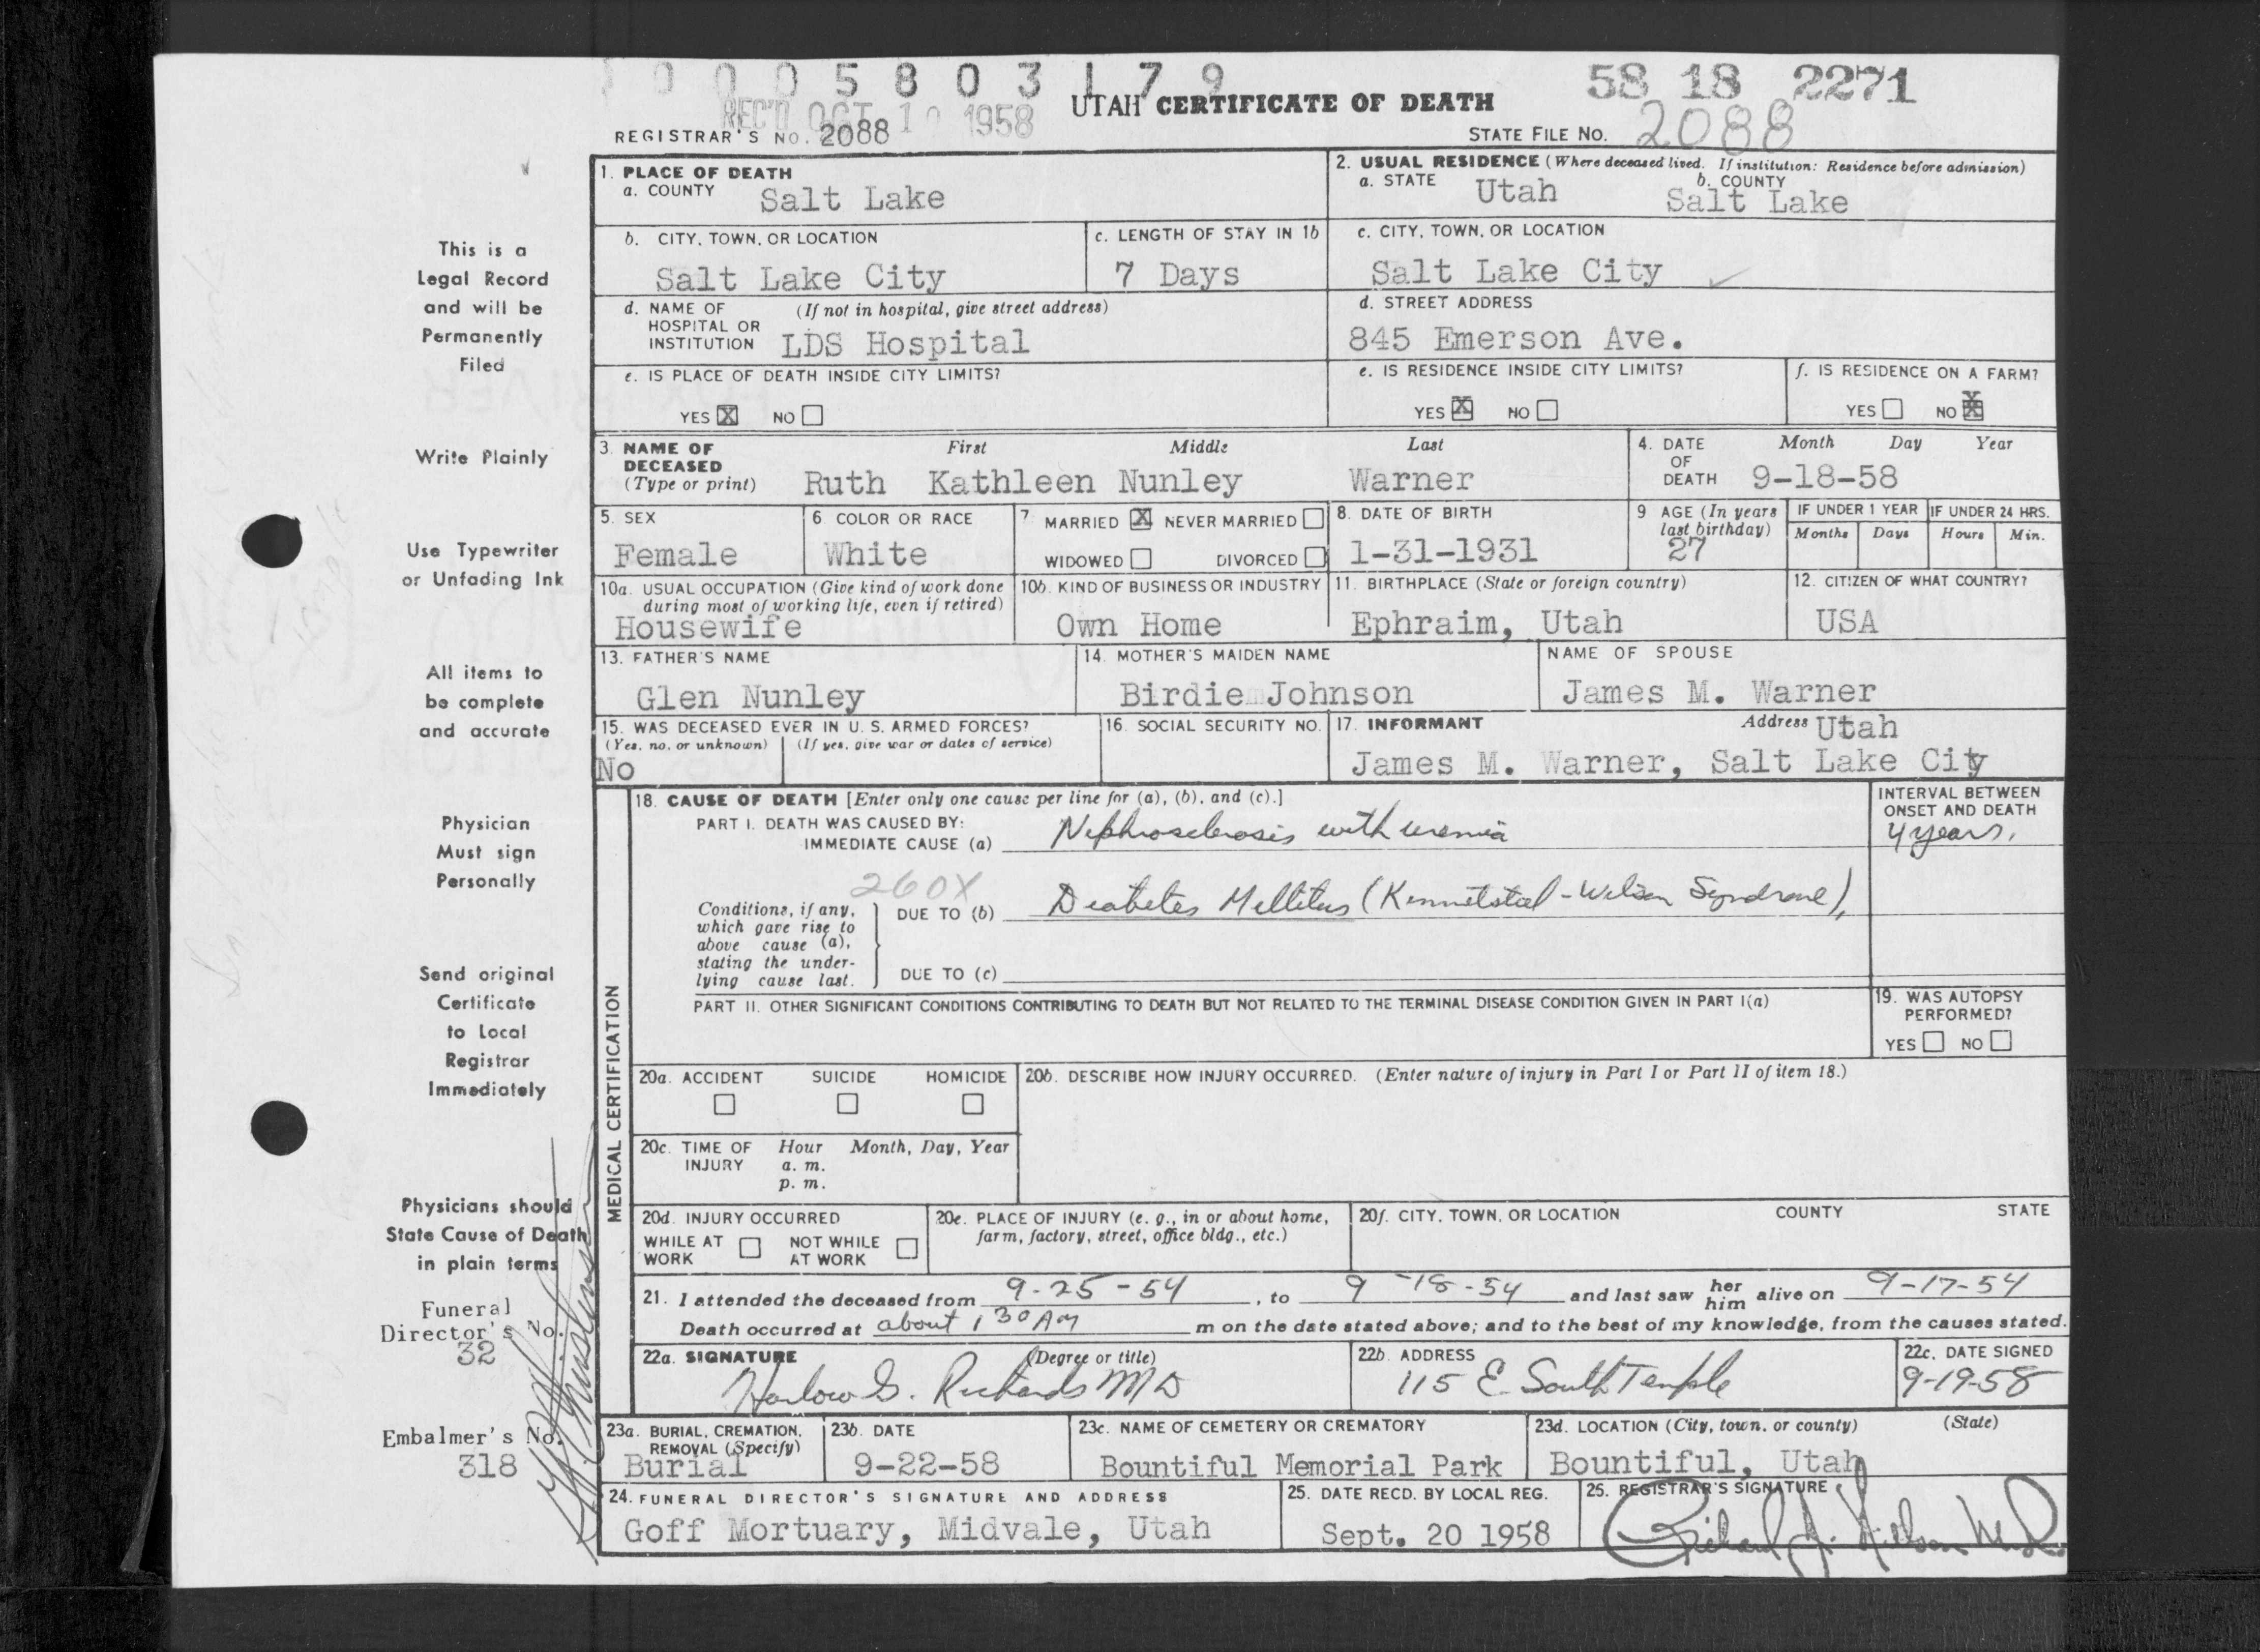 0 0 0 5 8 0 3 1 7 9
58 18 2271
REC'D OCT 10 1958
UTAH CERTIFICATE OF DEATH
REGISTRAR'S NO. 2088
STATE FILE NO. 2088
1. PLACE OF DEATH
a. COUNTY Salt Lake
2. USUAL RESIDENCE (Where deceased lived. If institution: Residence before admission)
a. STATE Utah b. COUNTY Salt Lake
b. CITY, TOWN, OR LOCATION Salt Lake City
c. LENGTH OF STAY IN 1b 7 Days
c. CITY, TOWN, OR LOCATION Salt Lake City
d. NAME OF HOSPITAL OR INSTITUTION (If not in hospital, give street address) LDS Hospital
d. STREET ADDRESS 845 Emerson Ave.
e. IS PLACE OF DEATH INSIDE CITY LIMITS?
YES X NO
e. IS RESIDENCE INSIDE CITY LIMITS?
YES X NO
f. IS RESIDENCE ON A FARM?
YES NO X
3. NAME OF DECEASED (Type or print)
First Middle Last
Ruth Kathleen Nunley Warner
4. DATE OF DEATH Month Day Year
9-18-58
5. SEX Female
6. COLOR OR RACE White
7. MARRIED X NEVER MARRIED
WIDOWED DIVORCED
8. DATE OF BIRTH 1-31-1931
9 AGE (In years last birthday) 27
IF UNDER 1 YEAR Months Days
IF UNDER 24 HRS. Hours Min.
10a. USUAL OCCUPATION (Give kind of work done during most of working life, even if retired)
Housewife
10b. KIND OF BUSINESS OR INDUSTRY
Own Home
11. BIRTHPLACE (State or foreign country)
Ephraim, Utah
12. CITIZEN OF WHAT COUNTRY?
USA
13. FATHER'S NAME
Glen Nunley
14. MOTHER'S MAIDEN NAME
Birdie Johnson
NAME OF SPOUSE
James M. Warner
15. WAS DECEASED EVER IN U. S. ARMED FORCES?
(Yes, no, or unknown) (If yes, give war or dates of service)
No
16. SOCIAL SECURITY NO.
17. INFORMANT Address Utah
James M. Warner, Salt Lake City
MEDICAL CERTIFICATION
18. CAUSE OF DEATH [Enter only one cause per line for (a), (b), and (c).]
INTERVAL BETWEEN ONSET AND DEATH
PART I. DEATH WAS CAUSED BY:
IMMEDIATE CAUSE (a) Nephrosclerosis with uremia 4 years.
260X
Conditions, if any, which gave rise to above cause (a), stating the underlying cause last.
DUE TO (b) Diabetes Mellitus (Kimmelstiel-Wilson Syndrome),
DUE TO (c)
PART II. OTHER SIGNIFICANT CONDITIONS CONTRIBUTING TO DEATH BUT NOT RELATED TO THE TERMINAL DISEASE CONDITION GIVEN IN PART I(a)
19. WAS AUTOPSY PERFORMED?
YES NO
20a. ACCIDENT SUICIDE HOMICIDE
20b. DESCRIBE HOW INJURY OCCURRED. (Enter nature of injury in Part I or Part II of item 18.)
20c. TIME OF INJURY Hour a. m. p. m. Month, Day, Year
20d. INJURY OCCURRED
WHILE AT WORK NOT WHILE AT WORK
20e. PLACE OF INJURY (e. g., in or about home, farm, factory, street, office bldg., etc.)
20f. CITY, TOWN, OR LOCATION COUNTY STATE
21. I attended the deceased from 9-25-54, to 9-18-54 and last saw her him alive on 9-17-54
Death occurred at about 1 30 AM m on the date stated above; and to the best of my knowledge, from the causes stated.
22a. SIGNATURE (Degree or title)
Harlow G. Richards MD
22b. ADDRESS
115 E. South Temple
22c. DATE SIGNED
9-19-58
23a. BURIAL, CREMATION, REMOVAL (Specify)
Burial
23b. DATE
9-22-58
23c. NAME OF CEMETERY OR CREMATORY
Bountiful Memorial Park
23d. LOCATION (City, town, or county) (State)
Bountiful, Utah
24. FUNERAL DIRECTOR'S SIGNATURE AND ADDRESS
Goff Mortuary, Midvale, Utah
25. DATE RECD. BY LOCAL REG.
Sept. 20 1958
25. REGISTRAR'S SIGNATURE
This is a
Legal Record
and will be
Permanently
Filed
Write Plainly
Use Typewriter
or Unfading Ink
All items to
be complete
and accurate
Physician
Must sign
Personally
Send original
Certificate
to Local
Registrar
Immediately
Physicians should
State Cause of Death
in plain terms
Funeral
Director's No.
32
Embalmer's No.
318